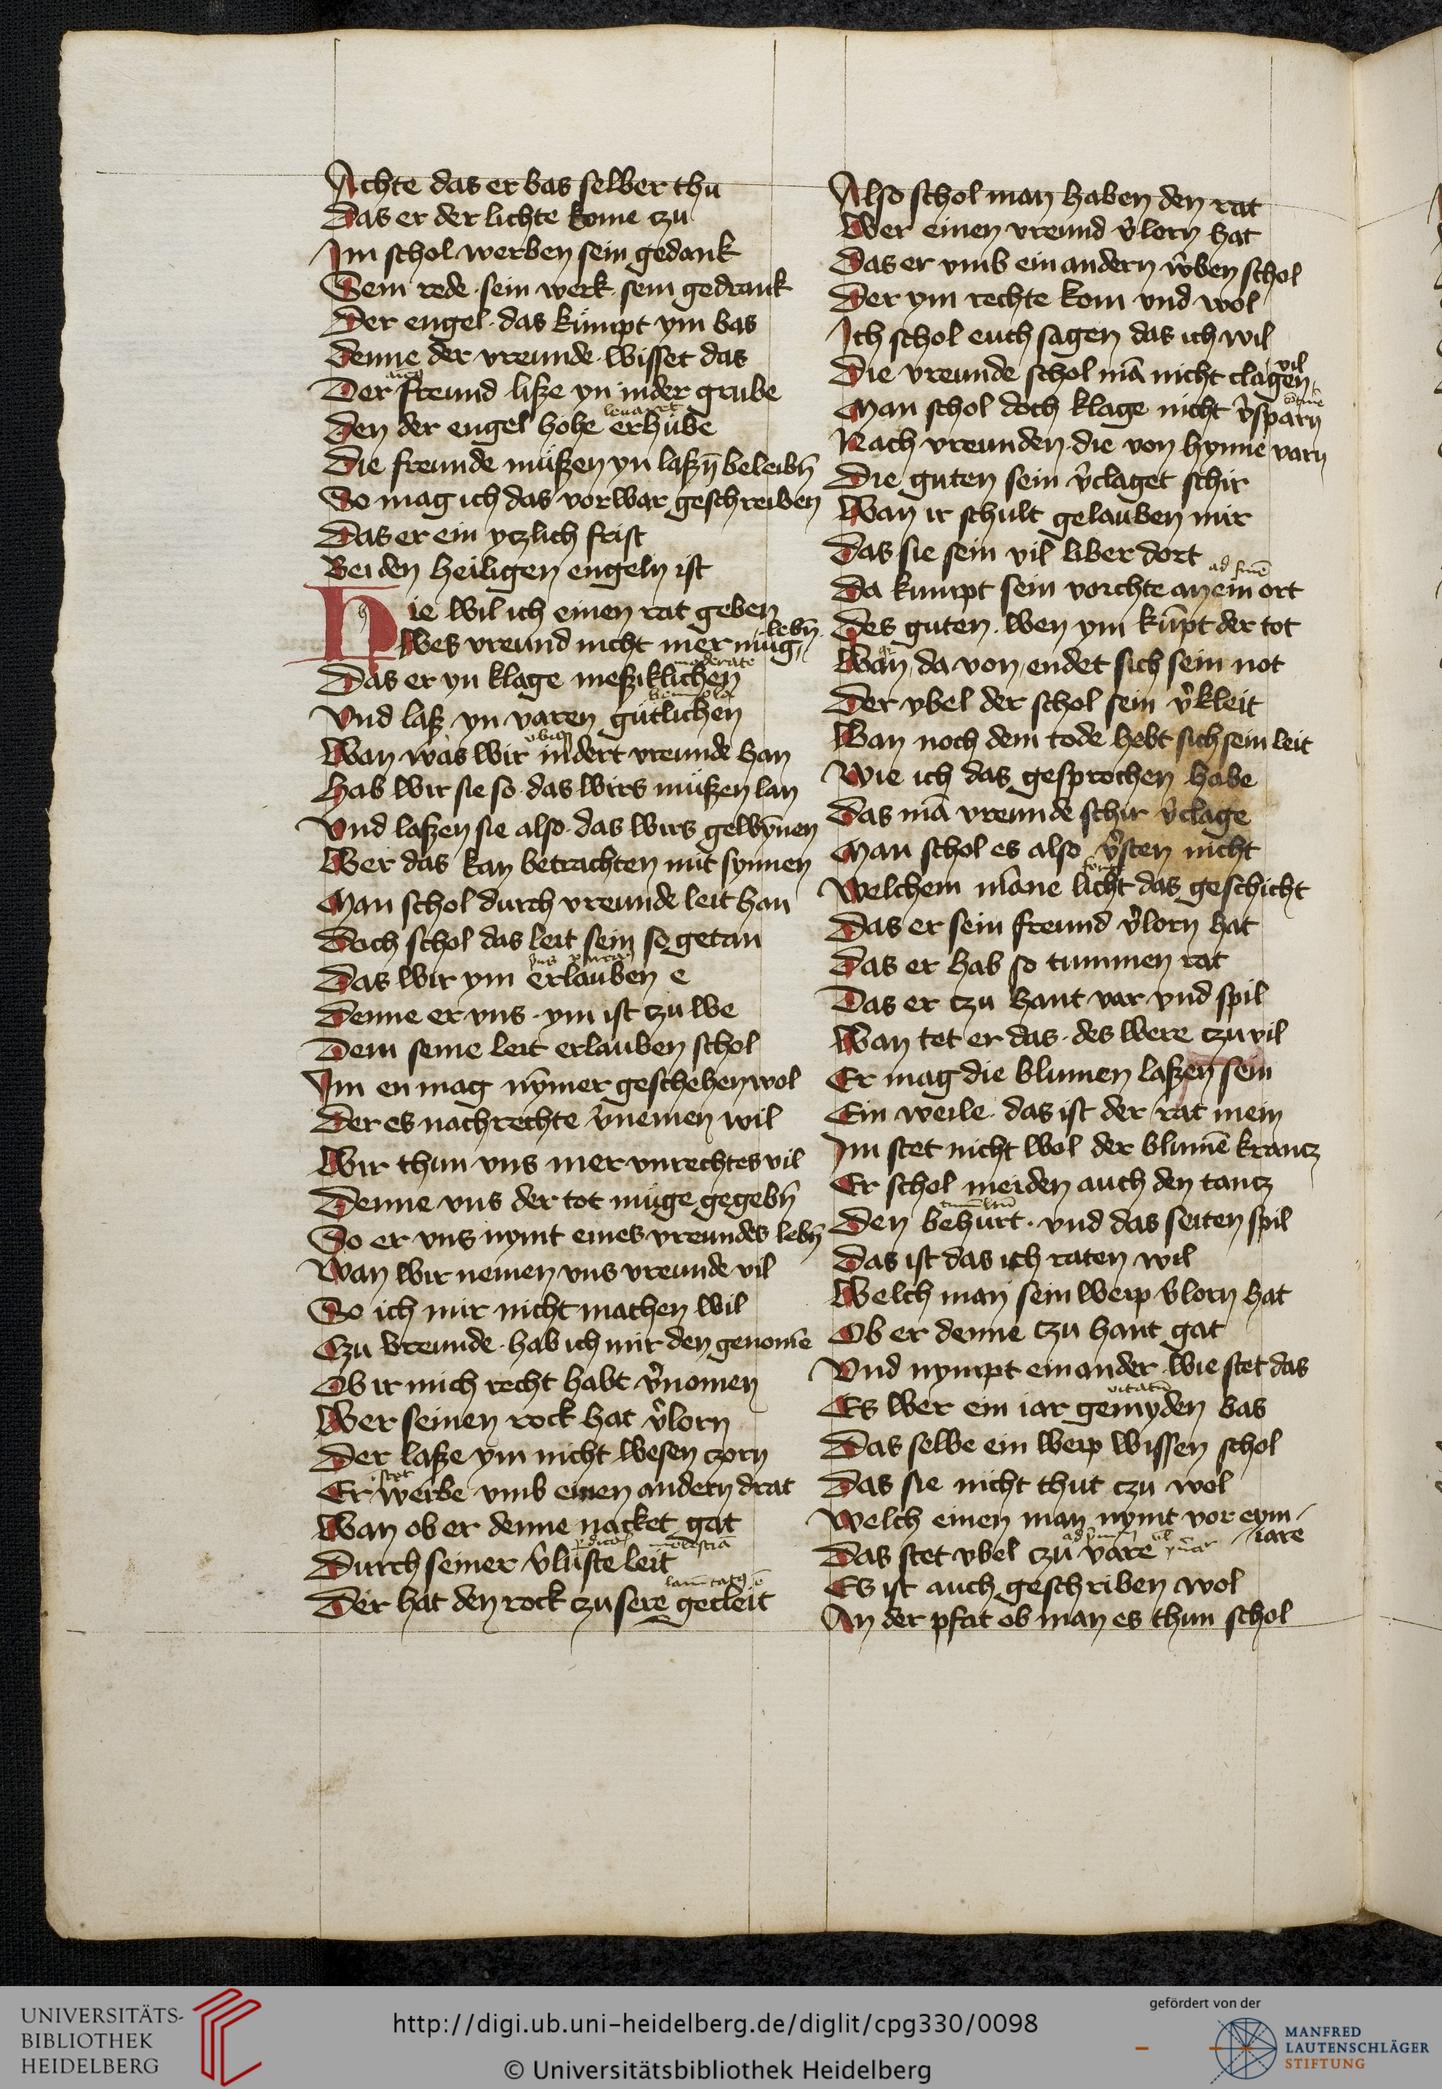 Achte das er bas selber thu
Das er der lichte kome czu
Im schol werben sein gedank
Sein rede · sein werk · sein gedrank
Der engel · das kümpt ym bas
Denne der vreunde · wisset das
Der freund lisze yn in der grube
Den der engel hohe erhube
Die freunde müszen yn laszn̄ beleibn̄
So mag ich das vorwar geschreiben
Das er ein yczlich frist
Bei den heiligen engeln ist
Hie wil ich einen rat geben
lebn̄
Wes vreund nicht mer mug
moderate
Das er yn klage mesziklichen
Vnd lasz yn varen gütlichen
Wan was wir indert vreunde han
Hab wir sie so · das wirs müszen lan
Vnd laszen sie also · das wirs gewȳnen
Wer das kan betrachten mit synnen
Man schol durch vreunde leit han
Doch schol das leit sein so getan
Das wir ym erlauben e
Denne er vns · ym ist czu we
Dem seine leit erlauben schol
Im en mag nȳmer geschehen wol
Der es nach rechte v̄nemen wil
Wir thun vns mer vnrechtes vil
Denne vns der tot müge gegebn̄
So er vns nymt eines vreundes lebn̄
Wan wir nemen vns vreunde vil
So ich mir nicht machen wil
Czu vreunde · hab ich mir den genom̄e
Ob ir mich recht habt v̄nomen
Wer seinen rock hat v̄lorn
Der lasze ym nicht wesen czorn
Er werbe vmb einen andern drat
Wan ob er denne nacket gat
Durch seiner v̄luste leit
Der hat den rock czu sere gecleit
Also schol man haben den rat
Wer einen vreund v̄lorn hat
Das er vmb ein andern w̄ben schol
Der ym rechte kom vnd wol
Ich schol euch sagen das ich wil
vil
Die vreunde schol mā nicht clagen
Man schol doch klage nicht v̄sparn
Nach vreunden · die von hynne varn
Die guten sein v̄claget schir
Wan ir schult gelauben mir
Das sie sein vil liber dort
ad finē
Da kumpt sein vorchte an ein ort
Des guten · wen ym kūpt der tot
Wan da von endet sich sein not
Der vbel der schol sein v̄kleit
Wan noch dem tode hebt sich sein leit
Wie ich das gesprochen habe
Das mā vreunde schir v̄clage
Man schol es also v̄sten nicht
Welchem māne licht das geschicht
Das er sein freund v̄lorn hat
Das er hab so tummen rat
Das er czu hant var vnd spil
Wan tet er das · des were czu vil
Er mag die blumen laszen sein
Ein weile · das ist der rat mein
Im stet nicht wol der blumē krancz
Er schol meiden auch den tancz
Den behurt · vnd das seiten spil
Das ist das ich raten wil
Welch man sein weip v̄lorn hat
Ob er denne czu hant gat
Vnd nympt ein ander · wie stet das
Es wer ein iar gemyden bas
Das selbe ein weip wissen schol
Das sie nicht thut czu wol
Welch einen man nymt vor eym
iare
Das stet vbel czu vare
Es ist auch geschriben wol
An der pfat ob man es thun schol
UNIVERSITÄTS-
BIBLIOTHEK
HEIDELBERG
http://digi.ub.uni-heidelberg.de/diglit/cpg330/0098
© Universitätsbibliothek Heidelberg
gefördert von der
MANFRED
LAUTENSCHLÄGER
STIFTUNG